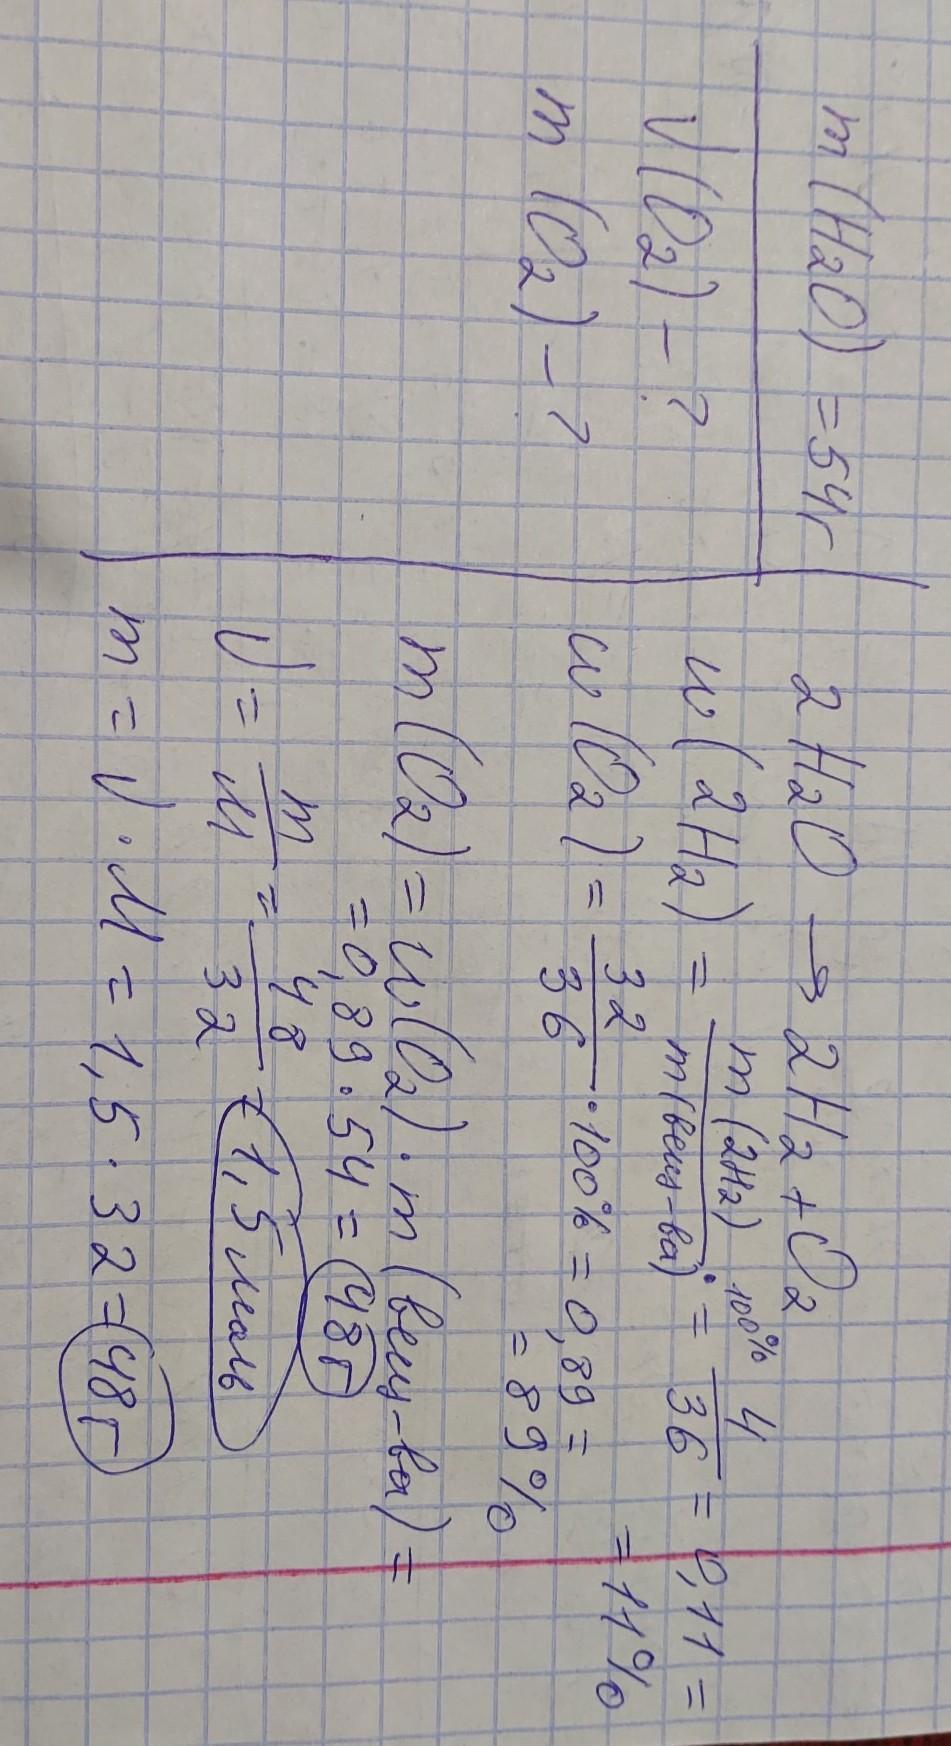 m (H₂O) = 54г
ν (O₂) – ?
m (O₂) – ?
2H₂O → 2H₂ + O₂
w (2H₂) = m(2H₂) / m(вещ-ва) · 100% = 4/36 = 0,11 =
= 11%
w (O₂) = 32/36 · 100% = 0,89 =
= 89%
m (O₂) = w(O₂) · m (вещ-ва) =
= 0,89 · 54 = 48г
ν = m/M = 48/32 = 1,5 моль
m = ν · M = 1,5 · 32 = 48г